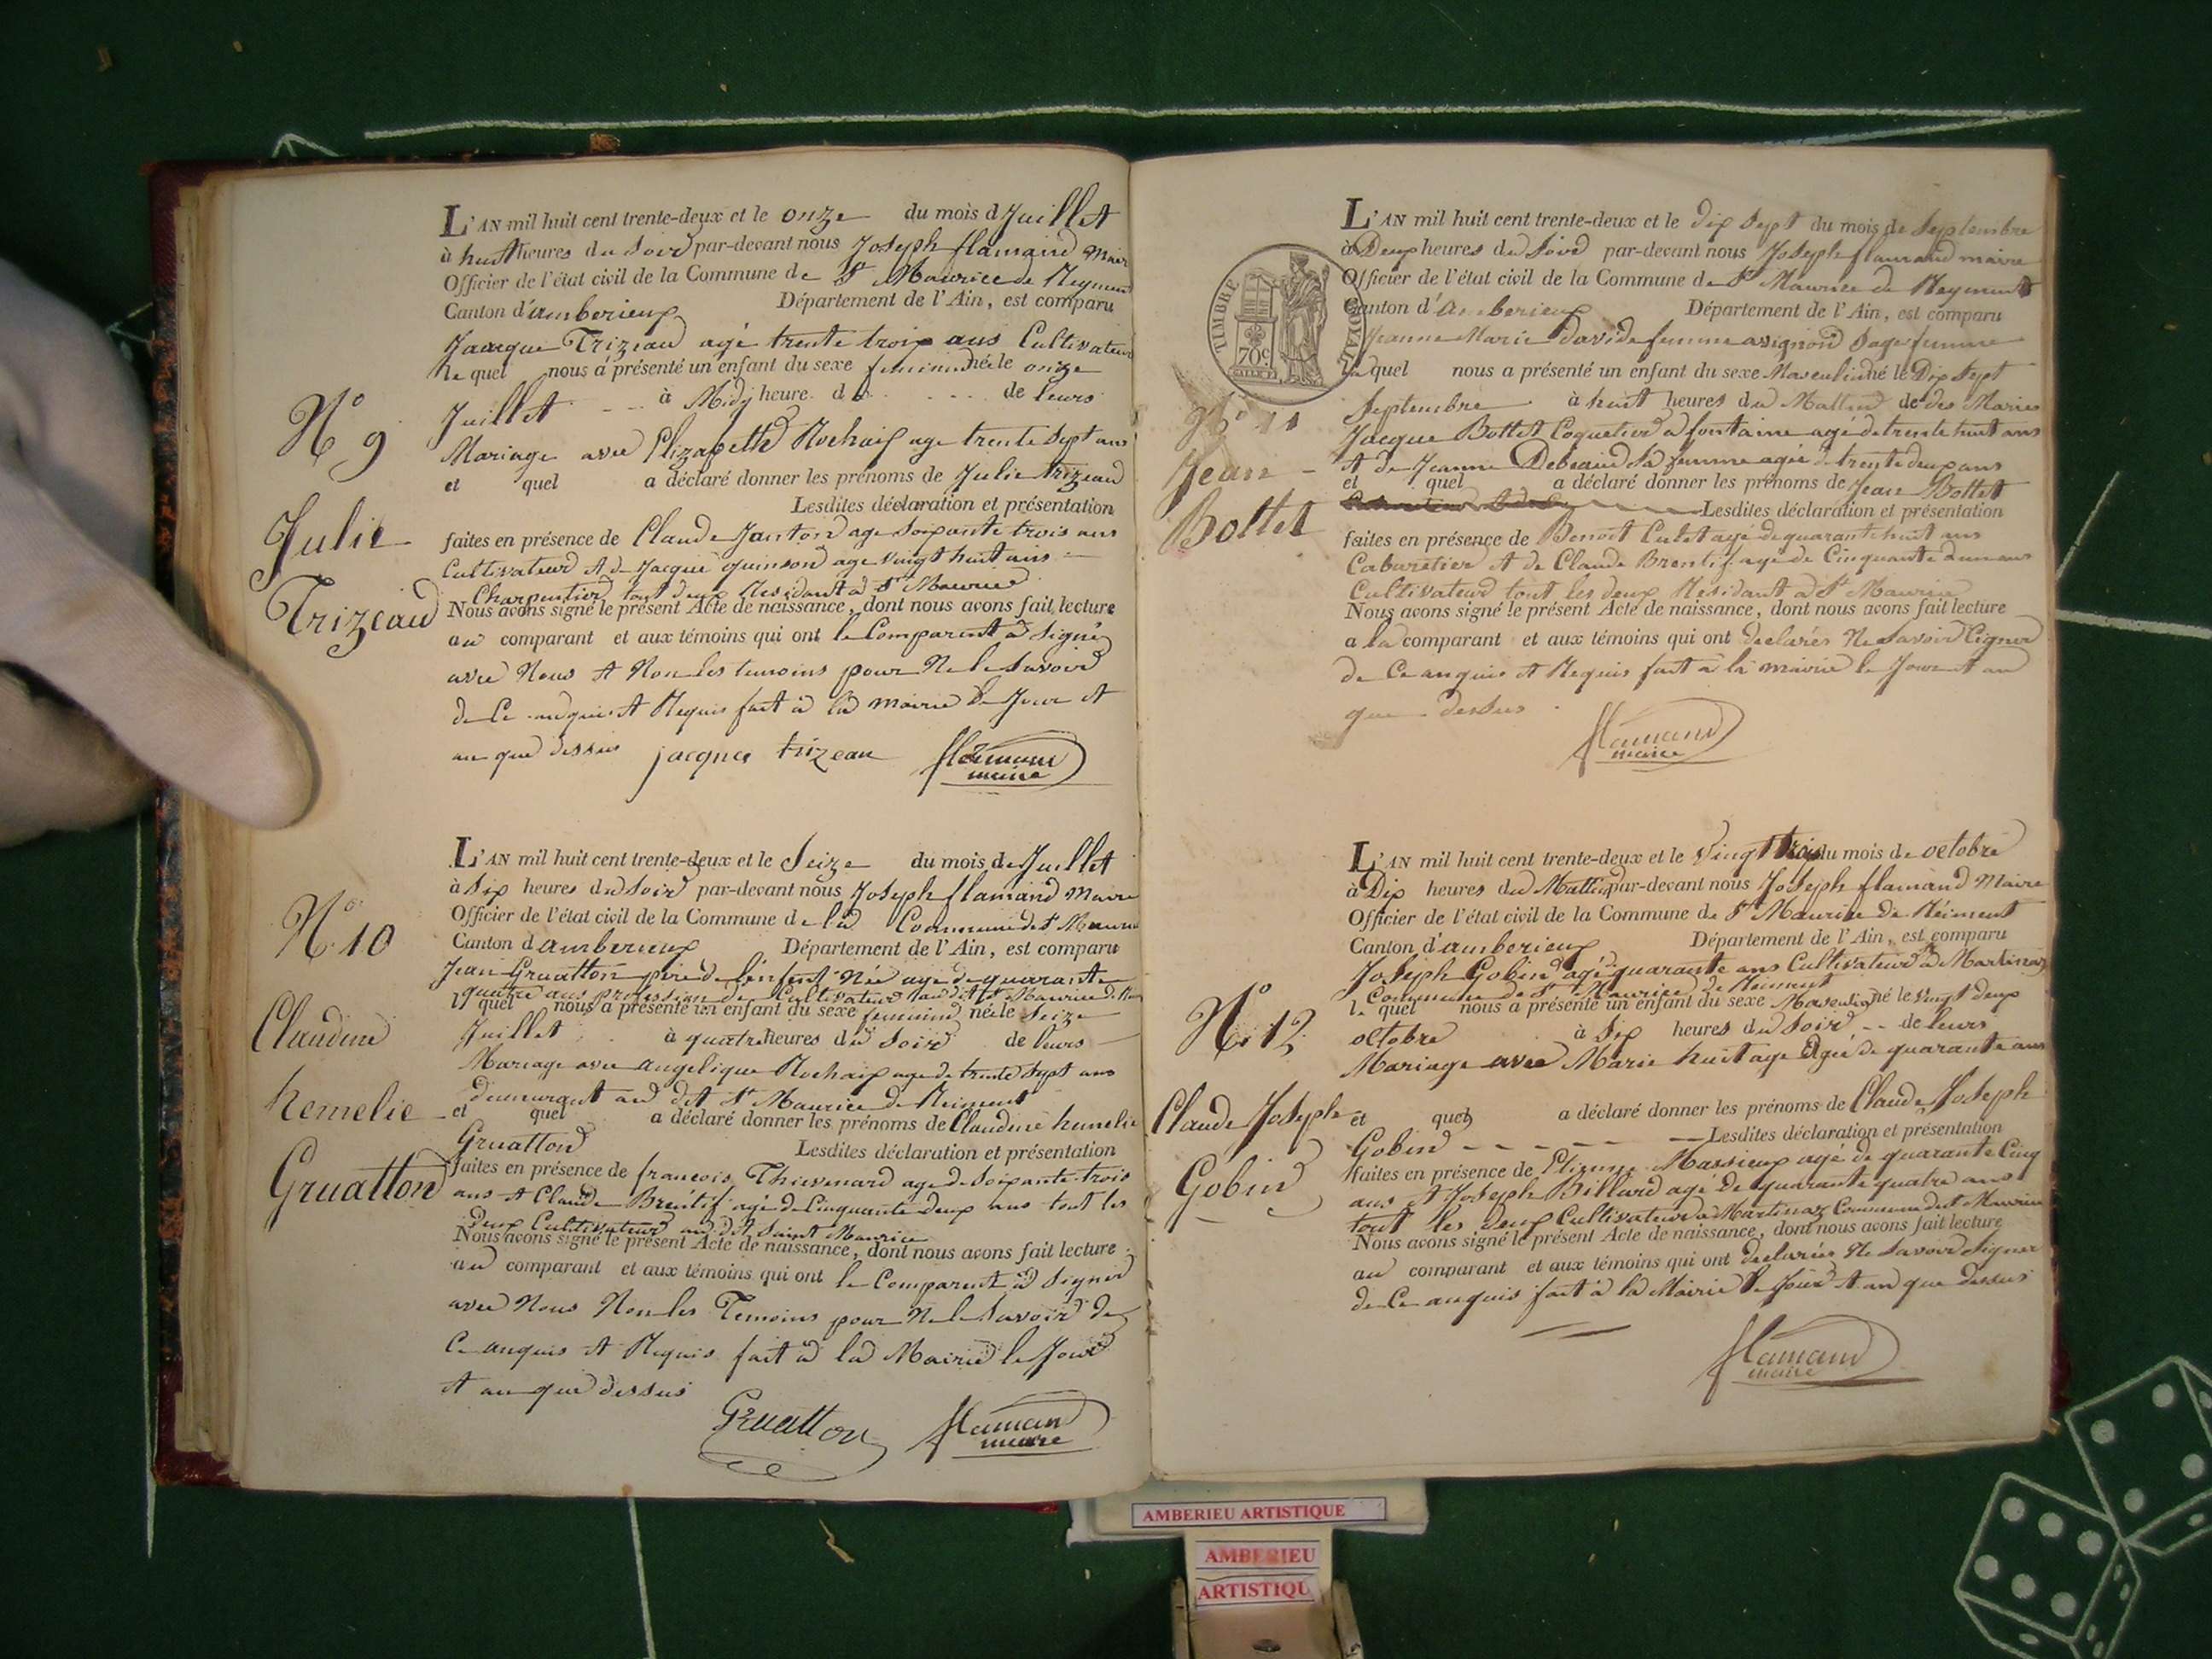 L'AN mil huit cent trente-deux et le onze du mois d Juillet
à huit heures du Soir par-devant nous Joseph flamand Maire
Officier de l'état civil de la Commune de St Maurice de Reymens
Canton d'amberieux Département de l'Ain, est comparu
Jacque Trizeau agé trente troix ans Cultivateur
le quel nous a présenté un enfant du sexe feminin né le onze
Juillet à Midy heure d de leurs
N° 9
Mariage avec Elizabeth Rochaix age trente Sept ans
et quel a déclaré donner les prénoms de Julie trizeau
Lesdites déclaration et présentation
Julie
faites en présence de Claude Janton age Soixante trois ans
Cultivateur et de Jacque guinson age vingt huit ans
Charpentier tout deux Residant a St Maurice
Trizeau
Nous avons signé le présent Acte de naissance, dont nous avons fait lecture
au comparant et aux témoins qui ont le Comparent a Signé
avec Nous et Non les temoins pour Ne le Savoir
de Ce anquis et Requis fait a la mairie le Jour et
an que dessus jacques trizeau flamand
maire
L'AN mil huit cent trente-deux et le Seize du mois de Juillet
à Six heures du Soir par-devant nous Joseph flamand Maire
Officier de l'état civil de la Commune de la Commune de St Maurice
N° 10
Canton d amberieux Département de l'Ain, est comparu
Jean Gruatton pere de l'enfent Née age de quarante
quatre ans profession de Cultivateur au dit St Maurice de
l quel nous a présenté un enfant du sexe feminin née le Seize
Claudine
Juillet à quatre heures du Soir de leurs
Mariage avec angelique Rochaix age de trente Sept ans
demeurant au dit St Maurice de Reiment
hemelie
et quel a déclaré donner les prénoms de Claudine hemelie
Gruatton Lesdites déclaration et présentation
Gruatton
faites en présence de francois Thievenard age de Soixante trois
ans et Claude Brentif agé de Cinquante deux ans tout les
deux Cultivateur au dit Saint Maurice
Nous avons signé le présent Acte de naissance, dont nous avons fait lecture
au comparant et aux témoins qui ont le Comparent a Signer
avec Nous Non les Temoins pour Ne le Savoir de
Ce anquis et Requis fait a la Mairie le Jour
et an que dessus
Gruatton flamand
maire
L'AN mil huit cent trente-deux et le dix Sept du mois de Septembre
à Deux heures du Soir par-devant nous Joseph flamand maire
Officier de l'état civil de la Commune de St Maurice de Reymens
Canton d'Amberieux Département de l'Ain, est comparu
TIMBRE ROYAL
70c
Jeanne Marie david femme avignon Sage femme
la quel nous a présenté un enfant du sexe Masculin né le Dix Sept
Septembre à huit heures du Mattin de des Maries
N° 11
Jacque Bottet Coquetier a fontaine agé de trente huit ans
et de Jeanne Debeaud Sa femme agée de trente deux ans
Jean
et quel a déclaré donner les prénoms de Jean Bottet
Lesdites déclaration et présentation
Bottet
faites en présence de Benoit Culet agé de quarante huit ans
Cabaretier et de Claude Brentif age de Cinquante deux ans
Cultivateur tout les deux Residant a St Maurice
Nous avons signé le présent Acte de naissance, dont nous avons fait lecture
a la comparant et aux témoins qui ont declarés Ne Savoir Signer
de Ce anquis et Requis fait a la mairie le Jour et an
que dessus
flamand
maire
L'AN mil huit cent trente-deux et le Vingt trois du mois de octobre
à Dix heures du Mattin par-devant nous Joseph flamand Maire
Officier de l'état civil de la Commune de St Maurice de Reiment
Canton d'amberieux Département de l'Ain, est comparu
Joseph Gobin agé quarante ans Cultivateur a Martinaz
Commune de St Maurice de Reiment
le quel nous a présenté un enfant du sexe Masculin né le vingt deux
N° 12
octobre à Six heures du Soir de leurs
Mariage avec Marie huit age Agée de quarante ans
Claude Joseph
et quel a déclaré donner les prénoms de Claude Joseph
Gobin Lesdites déclaration et présentation
Gobin
faites en présence de Etienne Massieux agé de quarante Cinq
ans et Joseph Billard agé De quarante quatre ans
tout les deux Cultivateur a Martinaz Commune de St Maurice
Nous avons signé le présent Acte de naissance, dont nous avons fait lecture
au comparant et aux témoins qui ont declarés Ne Savoir Signer
de Ce anquis fait a la Mairie le Jour et an que dessus
flamand
maire
AMBERIEU ARTISTIQUE
AMBERIEU
ARTISTIQU